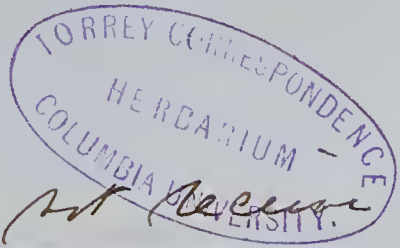 TORREY CORRESPONDENCE
HERBARIUM —
COLUMBIA UNIVERSITY.